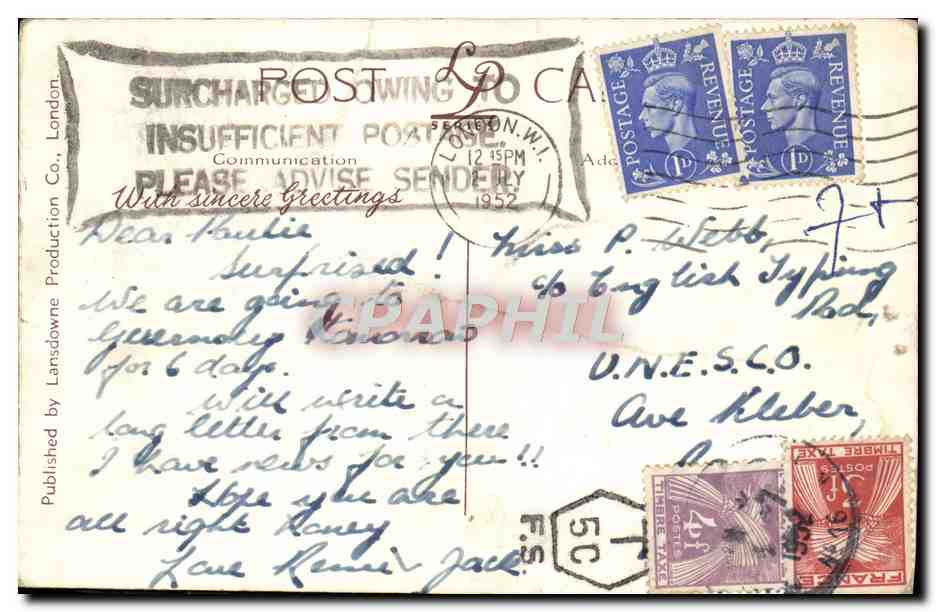 Published by Lansdowne Production Co., London.
POST CA
LP
SERIES
SURCHARGED OWING TO
INSUFFICIENT POSTAGE.
PLEASE ADVISE SENDER.
Communication
Add
With sincere Greetings
LONDON. W.1.
12 45 PM
JLY
1952
POSTAGE REVENUE
1D
POSTAGE REVENUE
1D
Dear Paulie
Surprised!
We are going to
Guernsey
for 6 days.
Will write a
long letter from there
I have news for you!!
Hope you are
all right Honey
Love Renie Jack
Miss P. Webb,
c/o English Typing
Pool,
U.N.E.S.C.O.
Ave Kleber,
CPAPHIL
T
5C
F.S.
4F
POSTES
TIMBRE TAXE
TIMBRE TAXE
POSTES
FRANCE